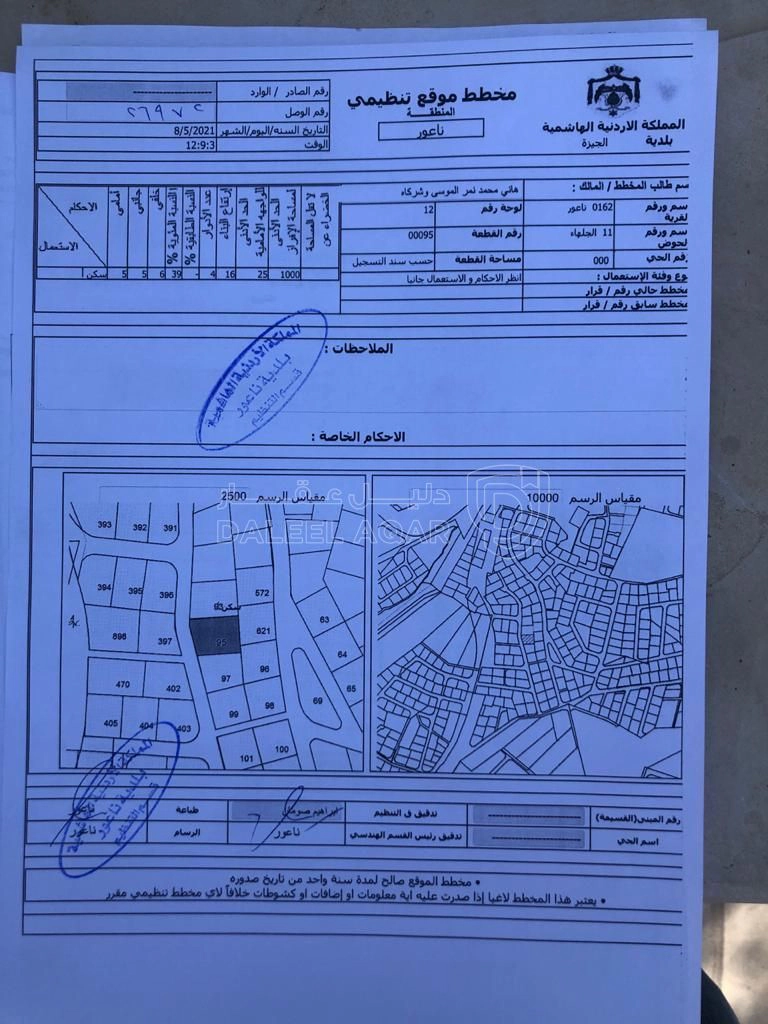 المملكة الاردنية الهاشمية
بلدية الجيزة
مخطط موقع تنظيمي
المنطقة
ناعور
رقم الصادر / الوارد --------------------
رقم الوصل ٢٦٩٧٢
التاريخ السنه/اليوم/الشهر 8/5/2021
الوقت 12:9:3
سم طالب المخطط / المالك : هاني محمد نمر الموسى وشركاه
سم ورقم لقرية 0162 ناعور لوحة رقم 12
سم ورقم لحوض 11 الجلهاء رقم القطعة 00095
قم الحي 000 مساحة القطعة حسب سند التسجيل
وع وفئة الإستعمال : انظر الاحكام و الاستعمال جانبا
مخطط حالي رقم / قرار
مخطط سابق رقم / قرار
الاحكام
الاستعمال
أمامي
جانبي
خلفي
النسبة المئوية %
النسبة الطابقية %
عدد الأدوار
إرتفاع البناء
الحد الأدنى للواجهه الأمامية
الحد الأدنى لمساحة الإفراز
لا تقل المساحة الخضراء عن
سكن 5 5 6 39 - 4 16 25 1000
الملاحظات :
المملكة الأردنية الهاشمية
بلدية ناعور
قسم التنظيم
الاحكام الخاصة :
مقياس الرسم 10000
مقياس الرسم 2500
دليل عقار
DALEEL AQAR
393 392 391
394 395 396
898 397
470 402
405 404 403
سكن
93
572
95 621
97 96
99 98
101 100
63
64
65
69
رقم المبنى(القسيمة) --------------------
تدقيق ق التنظيم ابراهيم صومان
طباعة ناعور
اسم الحي --------------------
تدقيق رئيس القسم الهندسي ناعور
الرسام ناعور
المملكة الأردنية الهاشمية
بلدية ناعور
قسم التنظيم
• مخطط الموقع صالح لمدة سنة واحد من تاريخ صدوره
• يعتبر هذا المخطط لاغيا إذا صدرت عليه اية معلومات او إضافات او كشوطات خلافاً لاي مخطط تنظيمي مقرر